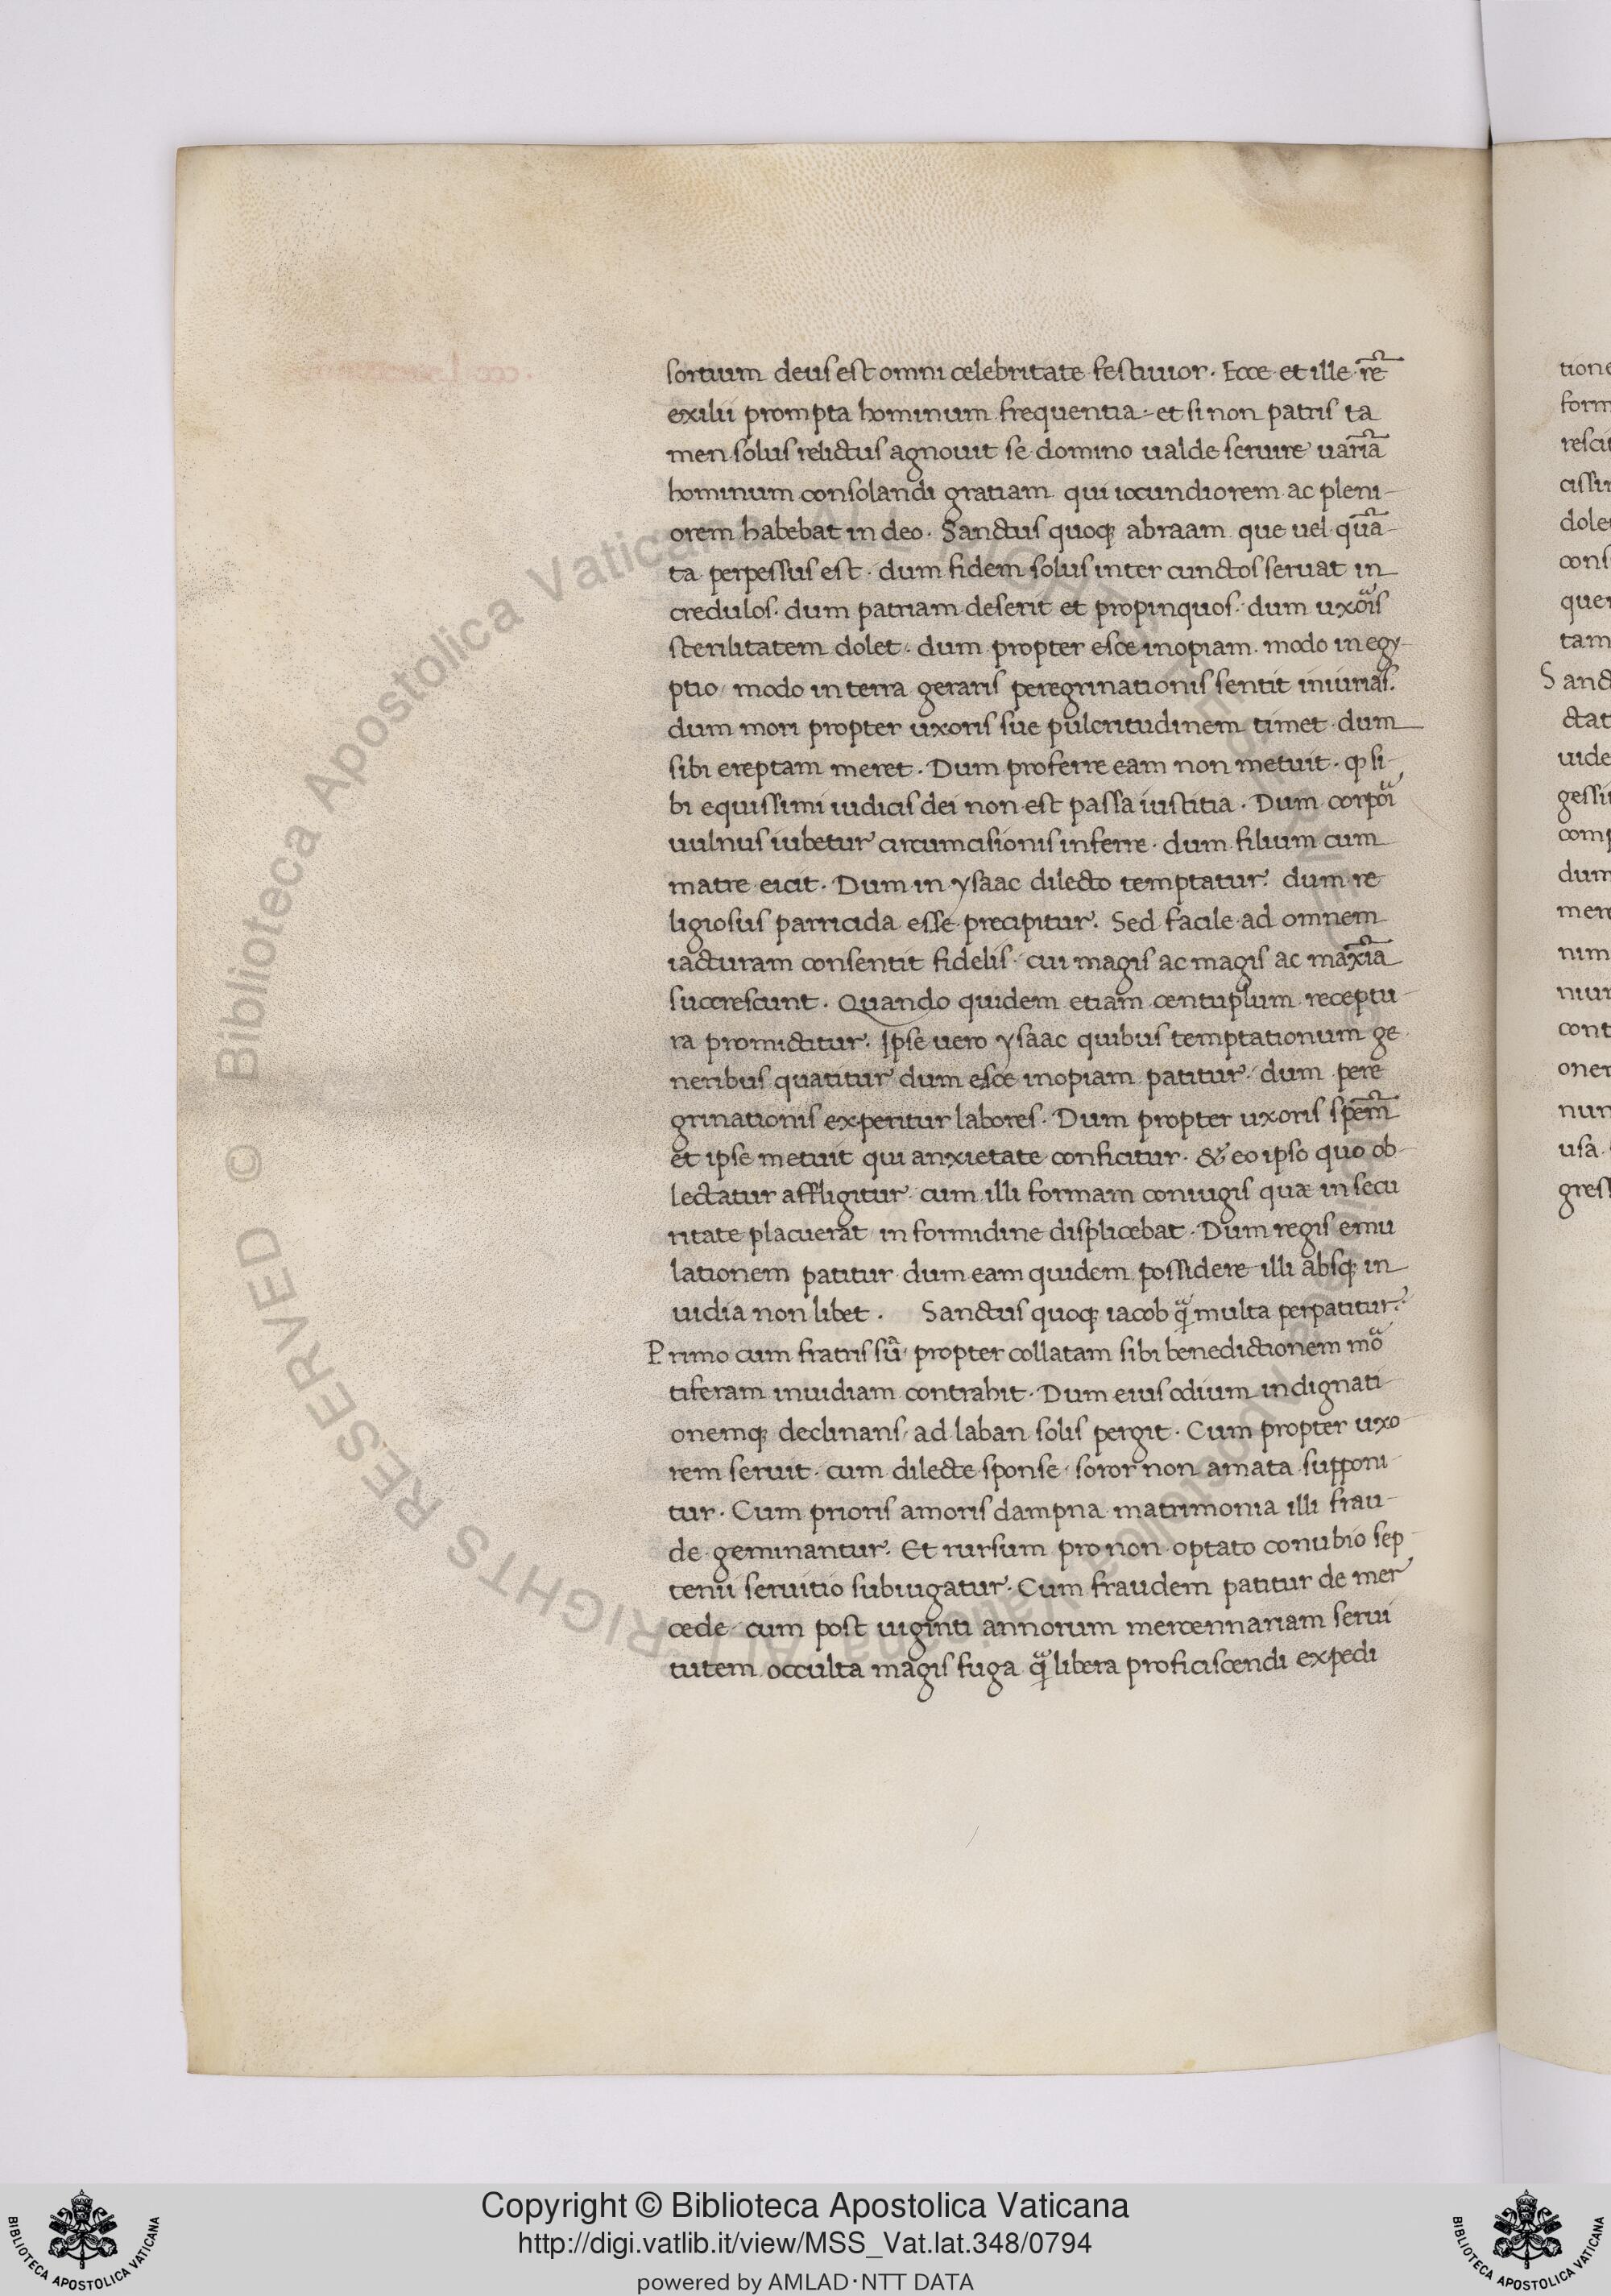 sortium deus est omni celebritate festiuior. Ecce et ille rē
exilii prompta hominum frequentia et si non patris ta
men solus relictus agnouit se domino ualde seruire uariā
hominum consolandi gratiam qui iocundiorem ac pleni-
orem habebat in deo. Sanctus quoqꝫ abraam que uel quā-
ta perpessus est. dum fidem solus inter cunctos seruat in
credulos. dum patriam deserit et propinquos. dum uxoͣis
sterilitatem dolet. dum propter esce inopiam. modo in egy-
ptio/ modo in terra geraris peregrinationis sentit iniurias.
dum mori propter uxoris sue pulcritudinem timet. dum
sibi ereptam meret. Dum proferre eam non metuit. ꝙ si-
bi equissimi iudicis dei non est passa iustitia. Dum corpoͣi
uulnus iubetur circumcisionis inferre. dum filium cum
matre eicit. Dum in ysaac dilecto temptatur. dum re
ligiosus parricida esse precipitur. Sed facile ad omnem
iacturam consentit fidelis. cui magis ac magis ac maxīa
succrescunt. Quando quidem etiam centuplum receptu-
ra promictitur. Ipse uero ysaac quibus temptationum ge
neribus quatitur dum esce inopiam patitur. dum pere
grinationis experitur labores. Dum propter uxoris spem̄
et ipse metuit qui anxietate conficitur. & eo ipso quo ob-
lectatur affligitur. cum illi formam coniugis quæ in secu
ritate placuerat in formidine displicebat. Dum regis emu
lationem patitur dum eam quidem possidere illi absqꝫ in
uidia non libet. Sanctus quoqꝫ iacob qͣ multa perpatitur.
Primo cum fratris sūi propter collatam sibi benedictionem moͣ
tiferam inuidiam contrahit. Dum eius odium indignati
onemqꝫ declinans, ad laban solis pergit. Cum propter uxo
rem seruit. cum dilecte sponse. soror non amata supponi-
tur. Cum prioris amoris dampna matrimonia illi frau-
de geminantur. Et rursum pro non optato conubio sep
tenu seruitio subiugatur. Cum fraudem patitur de mer
cede. cum post uiginti annorum mercennariam serui
tutem occulta magis fuga qͣ libera proficiscendi expedi
tione
form
dole
cons
tam
Sanc
ctat
uide
gessi
comp
dum
mere
nim
cont
oner
nun
usa
gress
© Biblioteca Apostolica Vaticana ALL RIGHTS RESERVED
Copyright © Biblioteca Apostolica Vaticana
http://digi.vatlib.it/view/MSS_Vat.lat.348/0794
powered by AMLAD·NTT DATA
BIBLIOTECA APOSTOLICA VATICANA
BIBLIOTECA APOSTOLICA VATICANA